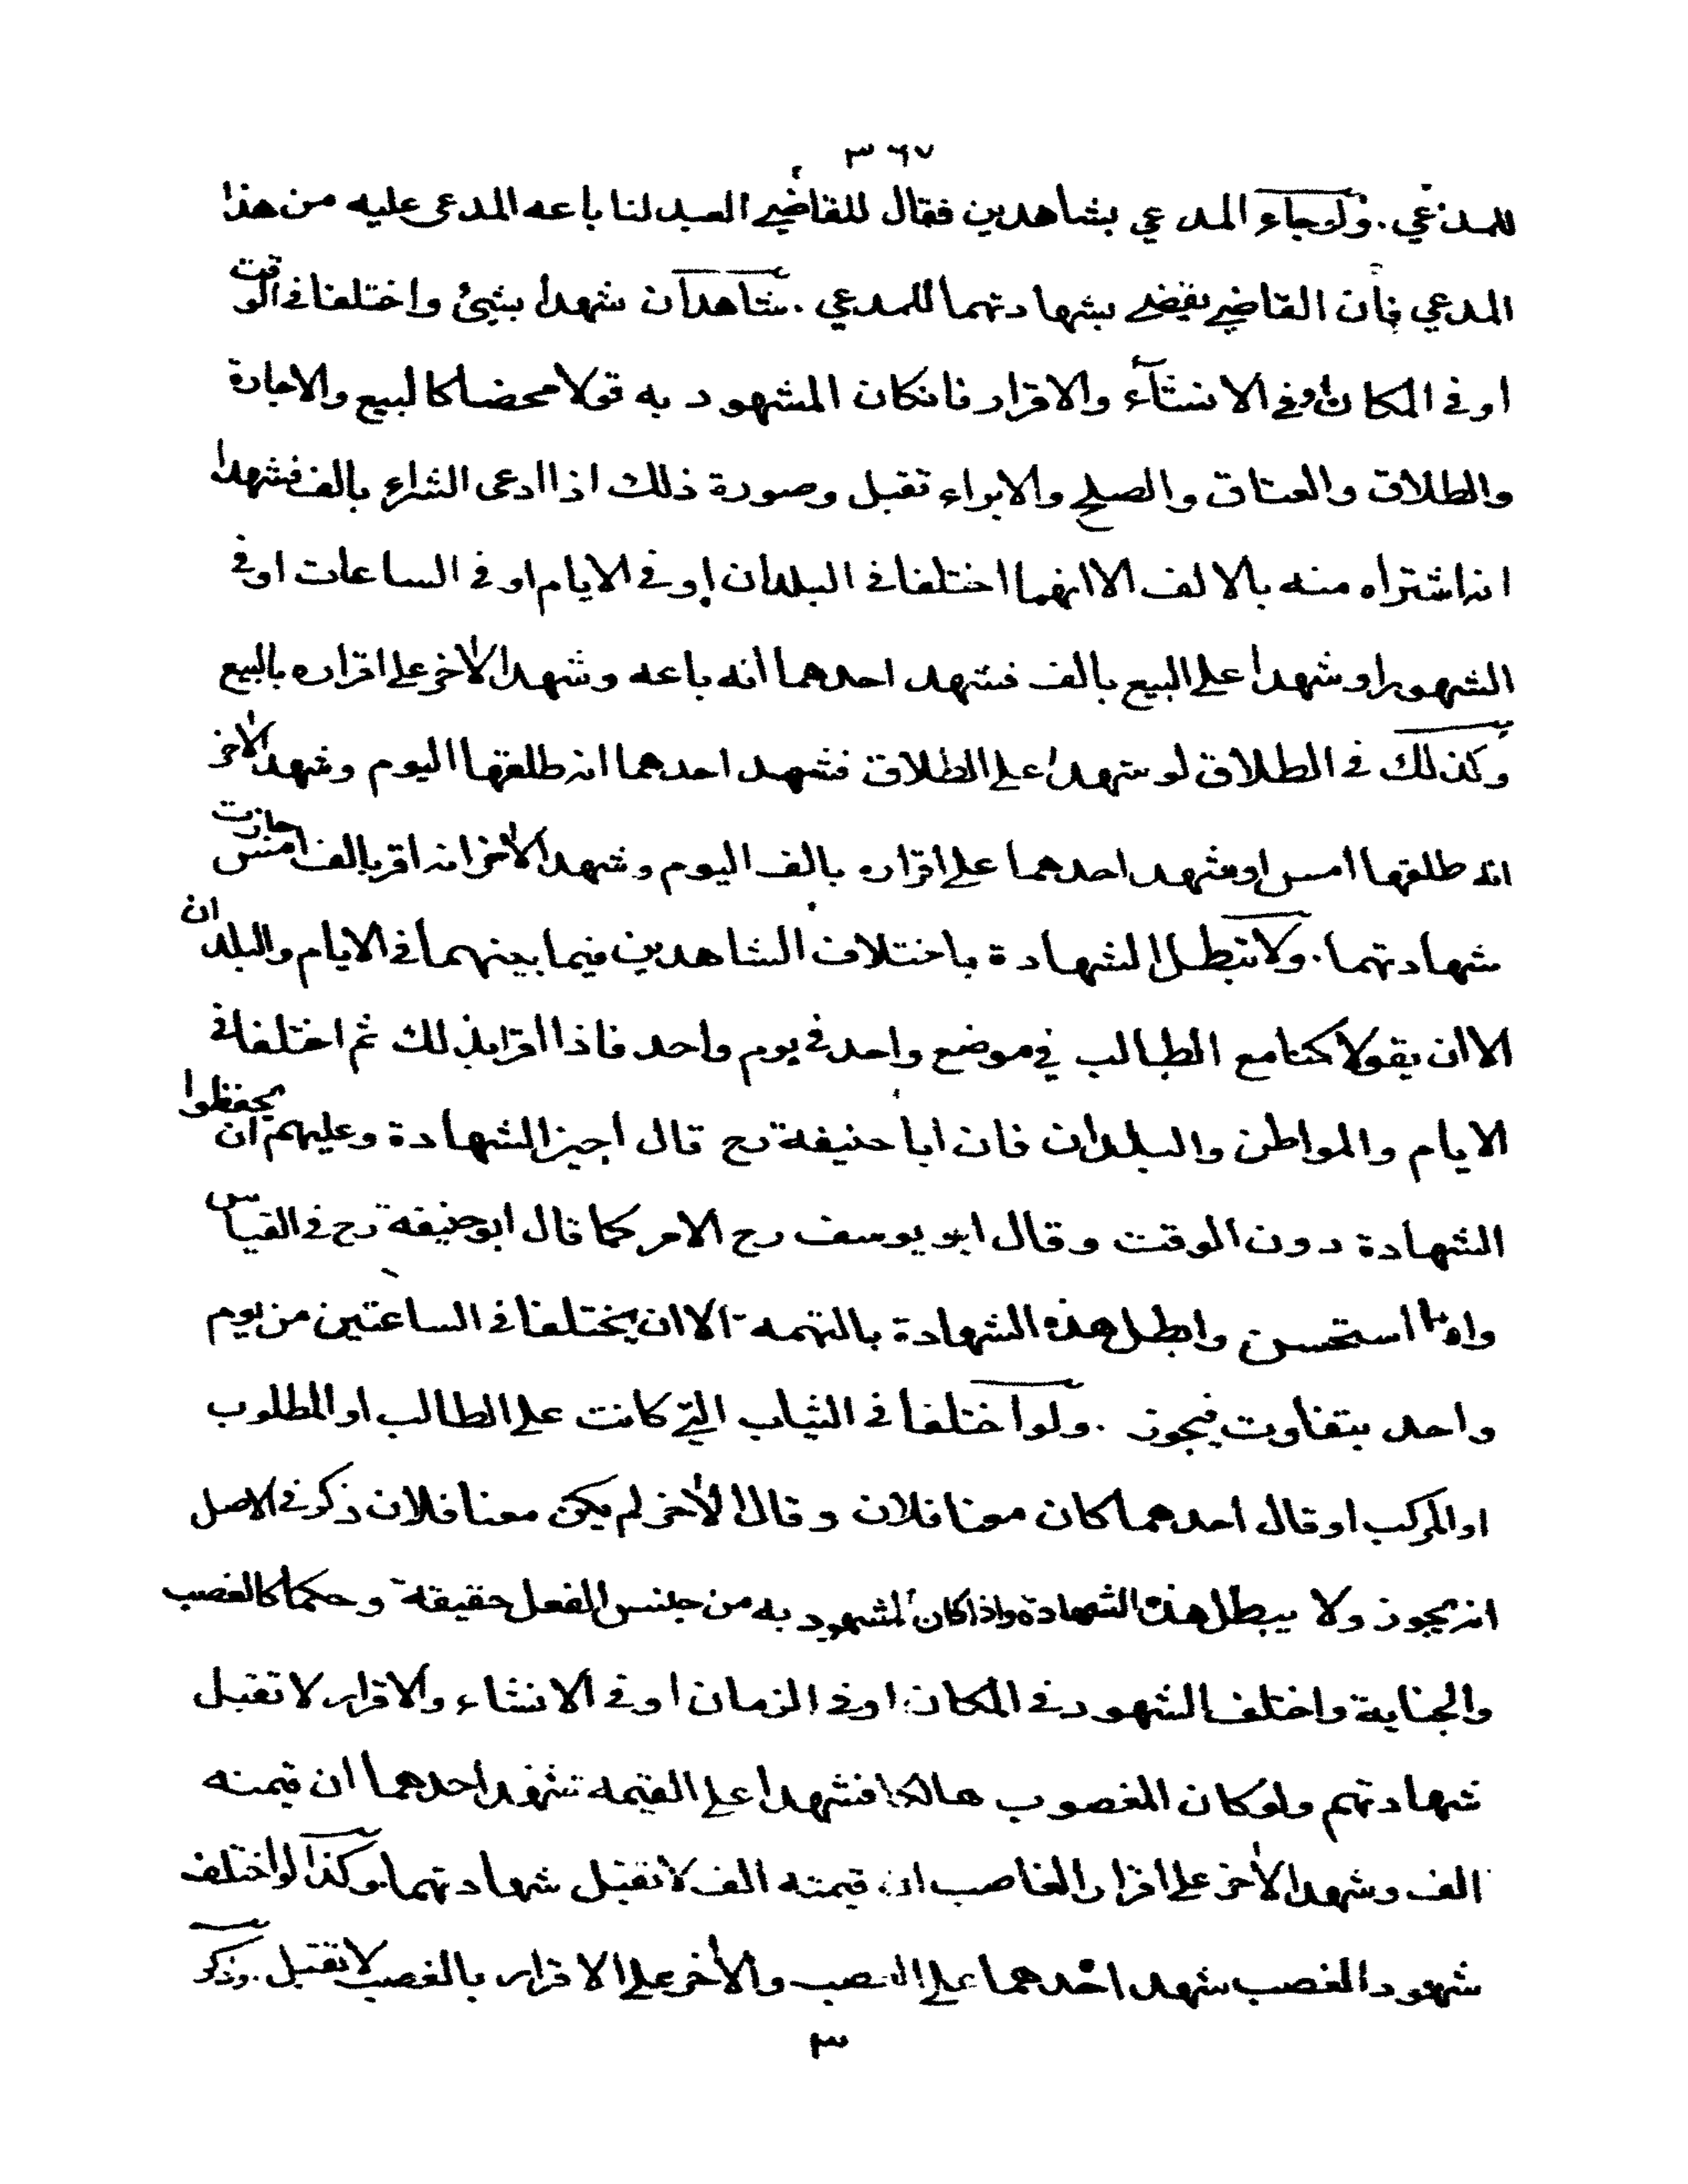 ٣٦٧
للمدعي . ولو جاء المدعي بشاهدين فقال للقاضي العبد لنا باعه المدعى عليه من هذا
المدعي فان القاضي يقضي بشهادتهما للمدعي . شاهدان شهدا بشئ واختلفا في الوقت
او في المكان او في الانشآء والاقرار فانكان المشهود به قولا محضا كالبيع والاجارة
والطلاق والعتاق والصلح والابراء تقبل وصورة ذلك اذا ادعى الشراء بالف فشهدا
انه اشتراه منه بالالف الا انهما اختلفا في البلدان او في الايام او في الساعات او في
الشهور او شهدا على البيع بالف فشهد احدهما انه باعه وشهد الاخر على اقراره بالبيع
وكذلك في الطلاق لو شهدا على الطلاق فشهد احدهما انه طلقها اليوم وشهد الاخر
انه طلقها امس او شهد احدهما على اقراره بالف اليوم وشهد الاخر انه اقر بالف امس جازت
شهادتهما . ولا تبطل الشهادة باختلاف الشاهدين فيما بينهما في الايام والبلدان
الا ان يقولا كنا مع الطالب في موضع واحد في يوم واحد فاذا اقرا بذلك ثم اختلفا في
الايام والمواطن والبلدان فان ابا حنيفة رح قال اجيز الشهادة وعليهم ان يحفظوا
الشهادة دون الوقت وقال ابو يوسف رح الامر كما قال ابو حنيفة رح في القياس
وانا استحسن وابطل هذه الشهادة بالتهمة الا ان يختلفا في الساعتين من يوم
واحد بتفاوت فيجوز . ولو اختلفا في الثياب التي كانت على الطالب او المطلوب
او المركب او قال احدهما كان معنا فلان وقال الاخر لم يكن معنا فلان ذكر في الاصل
انه يجوز ولا يبطل هذه الشهادة واذا كان المشهود به من جنس الفعل حقيقة وحكما كالغصب
والجناية واختلف الشهود في المكان او في الزمان او في الانشاء والاقرار لا تقبل
شهادتهم ولو كان المغصوب هالكا فشهدا على القيمة شهد احدهما ان قيمته
الف وشهد الاخر على اقرار الغاصب ان قيمته الف لا تقبل شهادتهما وكذا لو اختلف
شهود الغصب شهد احدهما على الغصب والاخر على الاقرار بالغصب لا تقبل . وذكر
٣